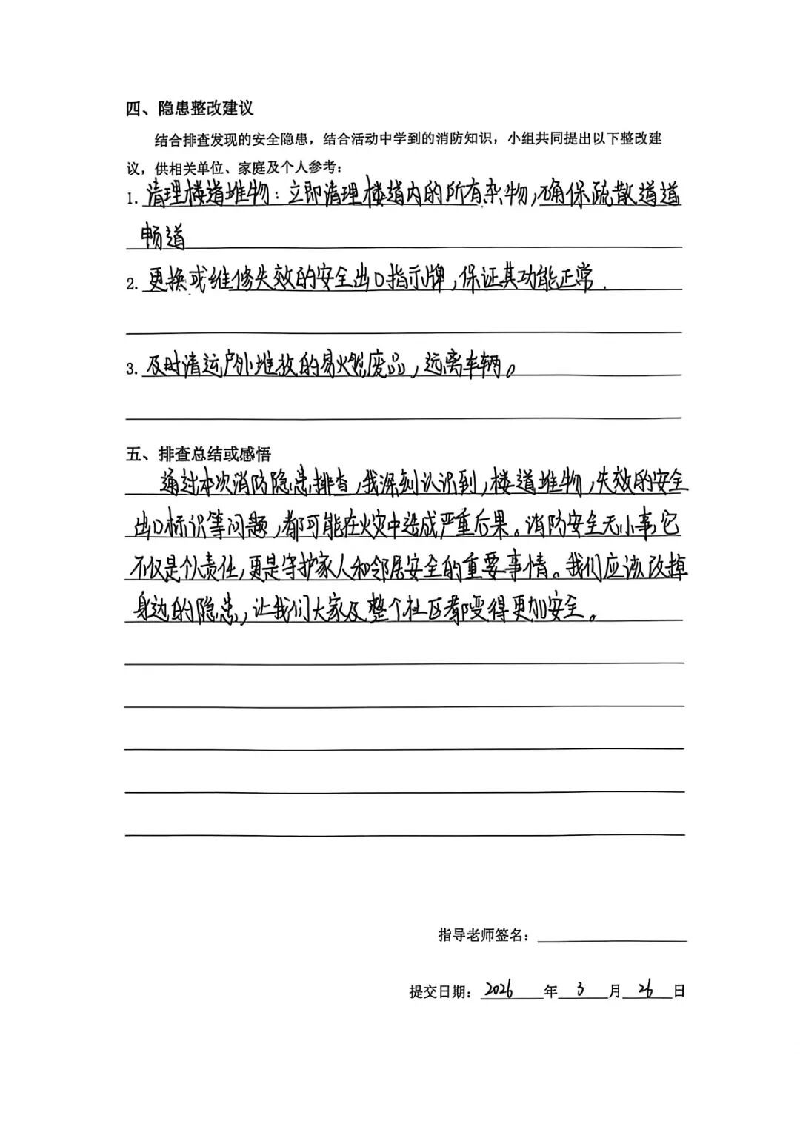 四、隐患整改建议
结合排查发现的安全隐患，结合活动中学到的消防知识，小组共同提出以下整改建
议，供相关单位、家庭及个人参考：
1. 清理楼道堆物：立即清理楼道内的所有杂物，确保疏散道道
畅道
2. 更换或维修失效的安全出口指示牌，保证其功能正常.
3. 及时清运户外堆放的易火燃废品，远离车辆。
五、排查总结或感悟
通过本次消防隐患排查，我深刻认识到，楼道堆物，失效的安全
出口标识等问题，都可能在火灾中造成严重后果。消防安全无小事，它
不仅是个人责任，更是守护家人和邻居安全的重要事情。我们应该改掉
身边的隐患，让我们大家及整个社区都变得更加安全。
指导老师签名：
提交日期：2026 年 3 月 26 日